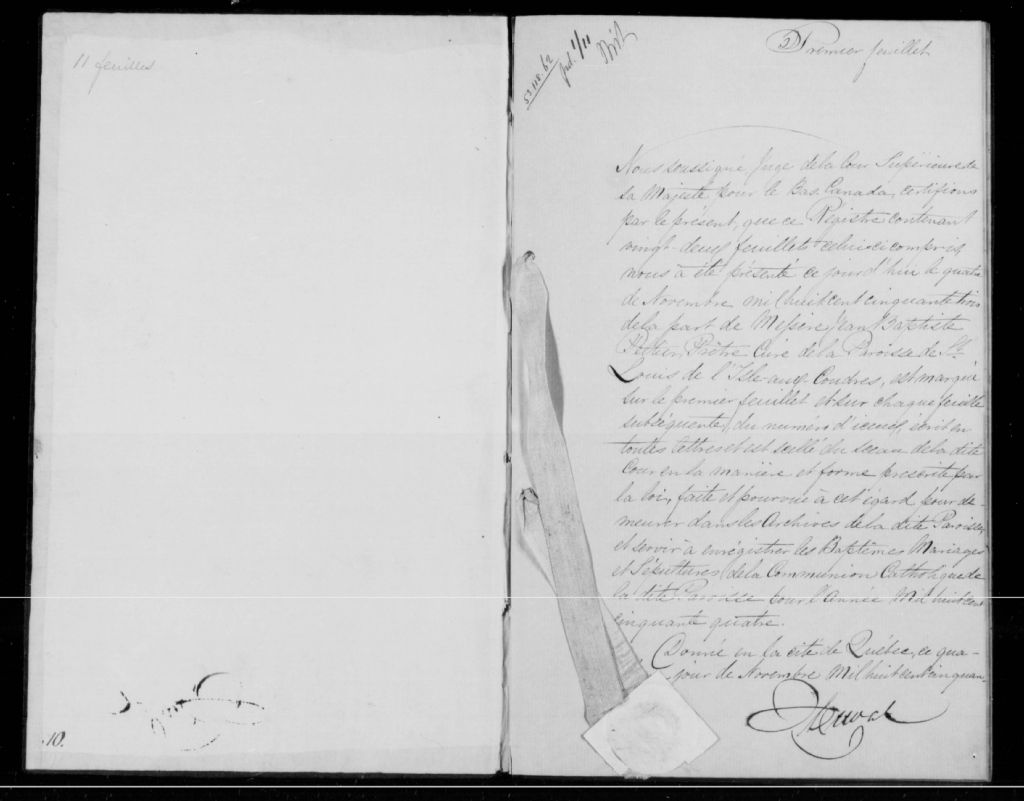 11 feuilles
10.
Premier feuillet
Nous soussigné, Juge de la Cour Supérieure de
sa Majesté pour le Bas Canada, certifions
par le présent, que ce Régistre contenant
vingt-deux feuillets celui-ci compris,
nous a été présenté ce jourd'hui le quatre
de Novembre mil huit cent cinquante trois
de la part de Messire Jean Baptiste
Pelletier, Prêtre Curé de la Paroisse de St.
Louis de l'Isle-aux-Coudres, est marqué
sur le premier feuillet et sur chaque feuille
subséquente, du numéro d'iceux, écrit en
toutes lettres et est scellé du sceau de la dite
Cour en la manière et forme prescrite par
la loi, faite et pourvue à cet égard pour de-
meurer dans les Archives de la dite Paroisse,
et servir à enrégistrer les Baptêmes Mariages
et Sépultures de la Communion Catholique de
la dite Paroisse pour l'Année Mil huit cent
cinquante quatre.
Donné en la cité de Québec, ce qua-
jour de Novembre Mil huit cent cinquan-
Duval